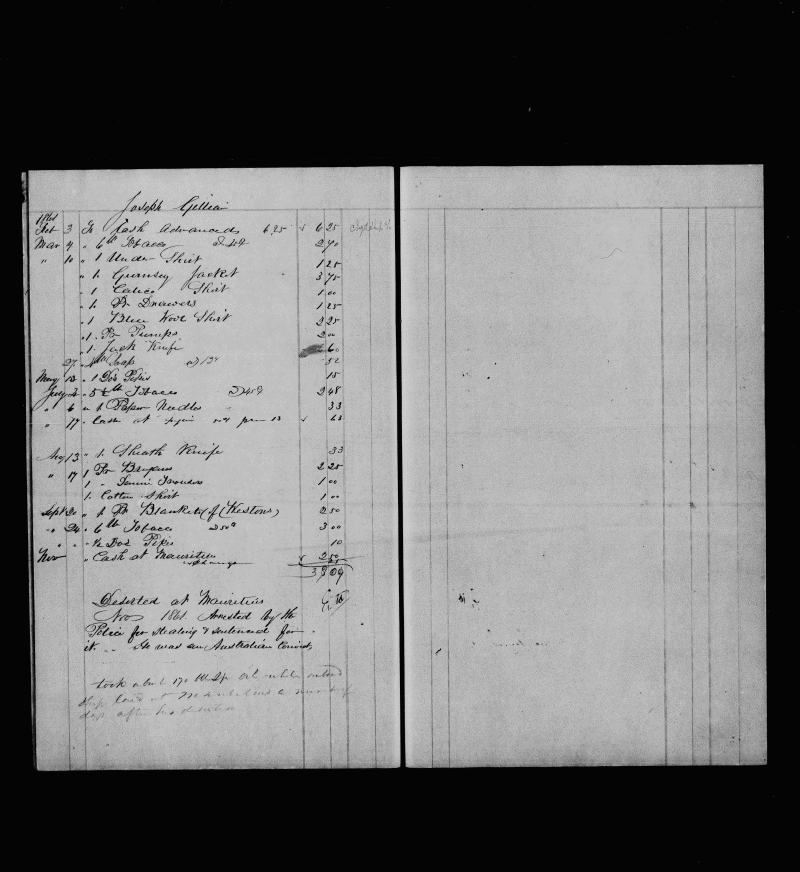 Joseph Gillian
1861
Feb 3 To Cash Advanceds 6.25 6 25
Mar 4 " 6 lb Tobacco @ 40¢ 2 40
" 10 " 1 Under Shirt 1 25
" 1 Gurnsey Jacket 3 75
" 1 Calico Shirt 1 00
" 1 Pr Drawers 1 25
" 1 Blue Wool Shirt 2 25
" 1 Pr Pumps 2 00
" 1 Jack Knife 60
27 " 4 lb Soap @ 13¢ 52
May 13 " 1 Doz Pipes 15
July " 5 ½ lb Tobacco @ 45¢ 2 48
" 6 " 1 Paper Needles 33
" 17 " Cash at 63
Aug 13 " 1 Sheath Knife 33
" 17 1 Pr Brogans 2 25
1 " Denim Trousers 1 00
1 Cotton Shirt 1 00
Sept 20 " 1 Pr Blankets (of Kestons) 2 50
" 24 " 6 lb Tobacco @ 50¢ 3 00
" " ½ Doz Pipes 10
Nov " Cash at Mauritius 2 50
exchange
Deserted at Mauritius
Nov 1861. Arrested by the
Police for stealing & sentenced for
it. He was an Australian Convict
took about 170 bbl Sp oil while on board
ship at Mauritius a number of
days after his desertion